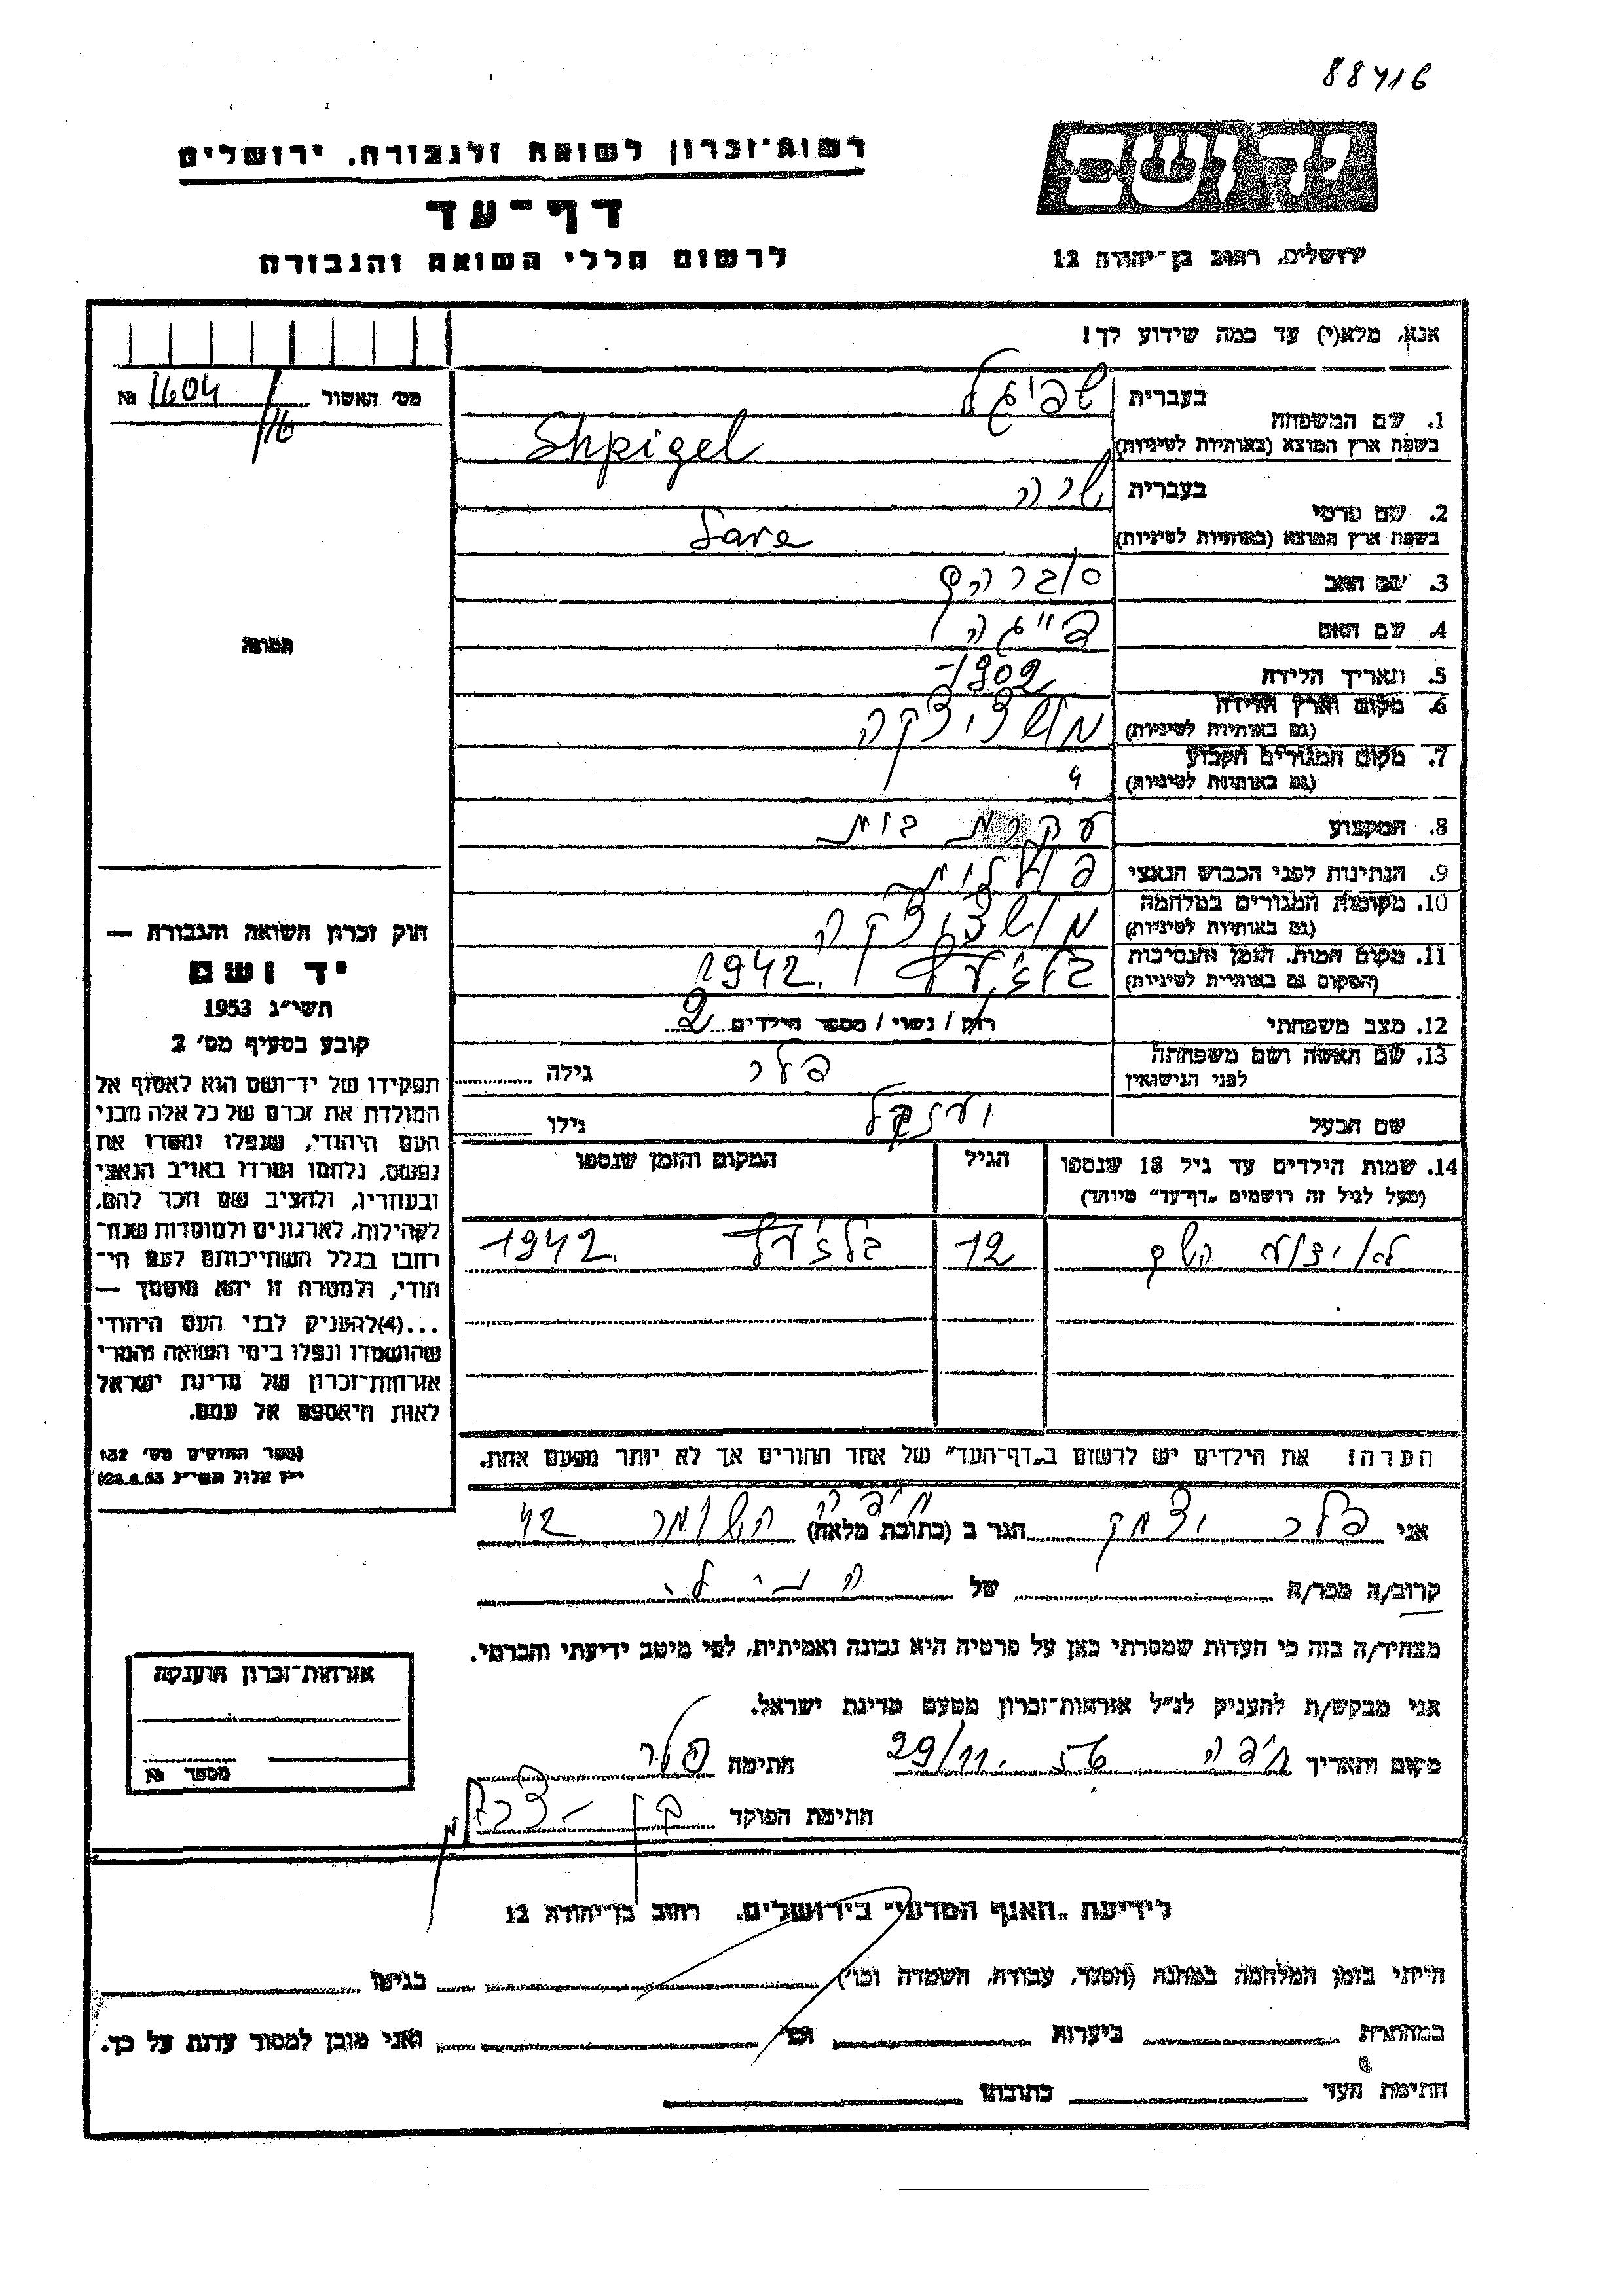 88416
יד ושם
רשות־זכרון לשואה ולגבורה, ירושלים
דף־עד
לרשום חללי השואה והגבורה
ירושלים, רחוב בן־יהודה 12
אנא, מלא(י) עד כמה שידוע לך!
מס' האשור № 1604/116
1. שם המשפחה
בעברית שפיגל
בשפת ארץ המוצא (באותיות לטיניות) Shpigel
2. שם פרטי
בעברית שרה
בשפת ארץ המוצא (באותיות לטיניות) Sara
3. שם האב אברהם
4. שם האם פייגה
5. תאריך הלידה 1902-
6. מקום וארץ הלידה
(גם באותיות לטיניות)
7. מקום המגורים הקבוע
(גם באותיות לטיניות) "
8. המקצוע עקרת בית
9. הנתינות לפני הכבוש הנאצי פולנית
10. מקומות המגורים במלחמה
(גם באותיות לטיניות)
11. מקום המות, הזמן והנסיבות
(המקום גם באותיות לטיניות) בלז'ץ 1942.
12. מצב משפחתי רווק / נשוי / מספר הילדים 2
13. שם האשה ושם משפחתה
לפני הנישואין פלר גילה
שם הבעל יחזקל גילו
14. שמות הילדים עד גיל 18 שנספו
(מעל לגיל זה רושמים „דף־עד" מיוחד)
הגיל
המקום והזמן שנספו
12 בלז'ץ 1942.
הערה! את הילדים יש לרשום ב„דף־העד" של אחד ההורים אך לא יותר מפעם אחת.
תמונה
חוק זכרון השואה והגבורה —
יד ושם
תשי"ג 1953
קובע בסעיף מס' 2
תפקידו של יד־ושם הוא לאסוף אל
המולדת את זכרם של כל אלה מבני
העם היהודי, שנפלו ומסרו את
נפשם, נלחמו ומרדו באויב הנאצי
ובעוזריו, ולהציב שם וזכר להם,
לקהילות, לארגונים ולמוסדות שנח־
רחבו בגלל השתייכותם לעם הי־
הודי, ולמטרה זו יהא מוסמך —
...(4)להעניק לבני העם היהודי
שהושמדו ונפלו בימי השואה והמרי
אזרחות־זכרון של מדינת ישראל
לאות היאספם אל עמם.
(ספר החוקים מס' 132
י"ז אלול תשי"ג 28.8.53)
אני פלר יצחק הגר ב (כתובת מלאה) חיפה השומר 42
קרוב/ה מכר/ה של
מצהיר/ה בזה כי העדות שמסרתי כאן על פרטיה היא נכונה ואמיתית, לפי מיטב ידיעתי והכרתי.
אני מבקש/ת להעניק לנ"ל אזרחות־זכרון מטעם מדינת ישראל.
מקום ותאריך חיפה 29/11. 56 חתימה פלר
חתימת הפוקד
אזרחות־זכרון הוענקה
מספר №
לידיעת „האגף המדעי" בירושלים, רחוב בן־יהודה 12
הייתי בזמן המלחמה במחנה (הסגר, עבודה, השמדה וכו') בגיטו
במחתרת ביערות וכו' ואני מוכן למסור עדות על כך.
חתימת העד כתובתו